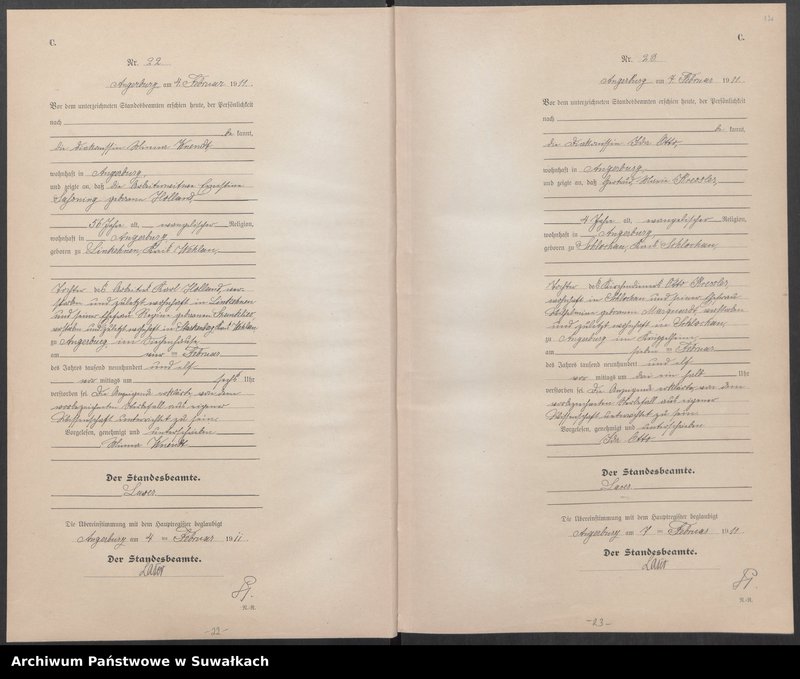 C.
Nr. 22
Angerburg am 4. Februar 1911.
Vor dem unterzeichneten Standesbeamten erschien heute, der Persönlichkeit
nach
be kannt,
die Diakonissin Minna Knendt
wohnhaft in Angerburg,
und zeigte an, daß die Arbeiterwitwe Ernestine
geborene Holland,
56 Jahre alt, evangelischer Religion,
wohnhaft in Angerburg
geboren zu Linkehnen, Kreis Wehlau,
Tochter des Arbeiters Karl Holland, ver-
storben und zuletzt wohnhaft in Linkehnen
und seiner Ehefrau Regine geborenen
verstorben und zuletzt wohnhaft in Kreis Wehlau
zu Angerburg im Siechenhause,
am vier ten Februar
des Jahres tausend neunhundert und elf
vor mittags um sechs Uhr
verstorben sei. Die Anzeigende erklärte, von dem
vorbezeichneten Sterbefall aus eigener
Wissenschaft unterrichtet zu sein.
Vorgelesen, genehmigt und unterschrieben
Minna Knendt
Der Standesbeamte.
Laser
Die Übereinstimmung mit dem Hauptregister beglaubigt
Angerburg am 4 ten Februar 1911
Der Standesbeamte.
Laser
N.-R.
-22-
C.
Nr. 23
Angerburg am 7. Februar 1911.
Vor dem unterzeichneten Standesbeamten erschien heute, der Persönlichkeit
nach
be kannt,
die Diakonissin Ida Otto,
wohnhaft in Angerburg,
und zeigte an, daß Gertrud Maria Kressler,
4 Jahre alt, evangelischer Religion,
wohnhaft in Angerburg,
geboren zu Schlochau, Kreis Schlochau,
Tochter des Kirchendieners Otto Kressler,
wohnhaft in Schlochau und seiner Ehefrau
Wilhelmine geborenen Marquardt, verstorben
und zuletzt wohnhaft in Schlochau,
zu Angerburg im Krüppelheim,
am sieben ten Februar
des Jahres tausend neunhundert und elf
vor mittags um drei ein halb Uhr
verstorben sei. Die Anzeigende erklärte, von dem
vorbezeichneten Sterbefall aus eigener
Wissenschaft unterrichtet zu sein
Vorgelesen, genehmigt und unterschrieben
Ida Otto
Der Standesbeamte.
Laser
Die Übereinstimmung mit dem Hauptregister beglaubigt
Angerburg am 7 ten Februar 1911
Der Standesbeamte.
Laser
N.-R.
-23-
Archiwum Państwowe w Suwałkach